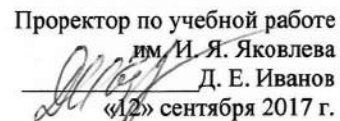 Проректор по учебной работе
им. И. Я. Яковлева
Д. Е. Иванов
«12» сентября 2017 г.